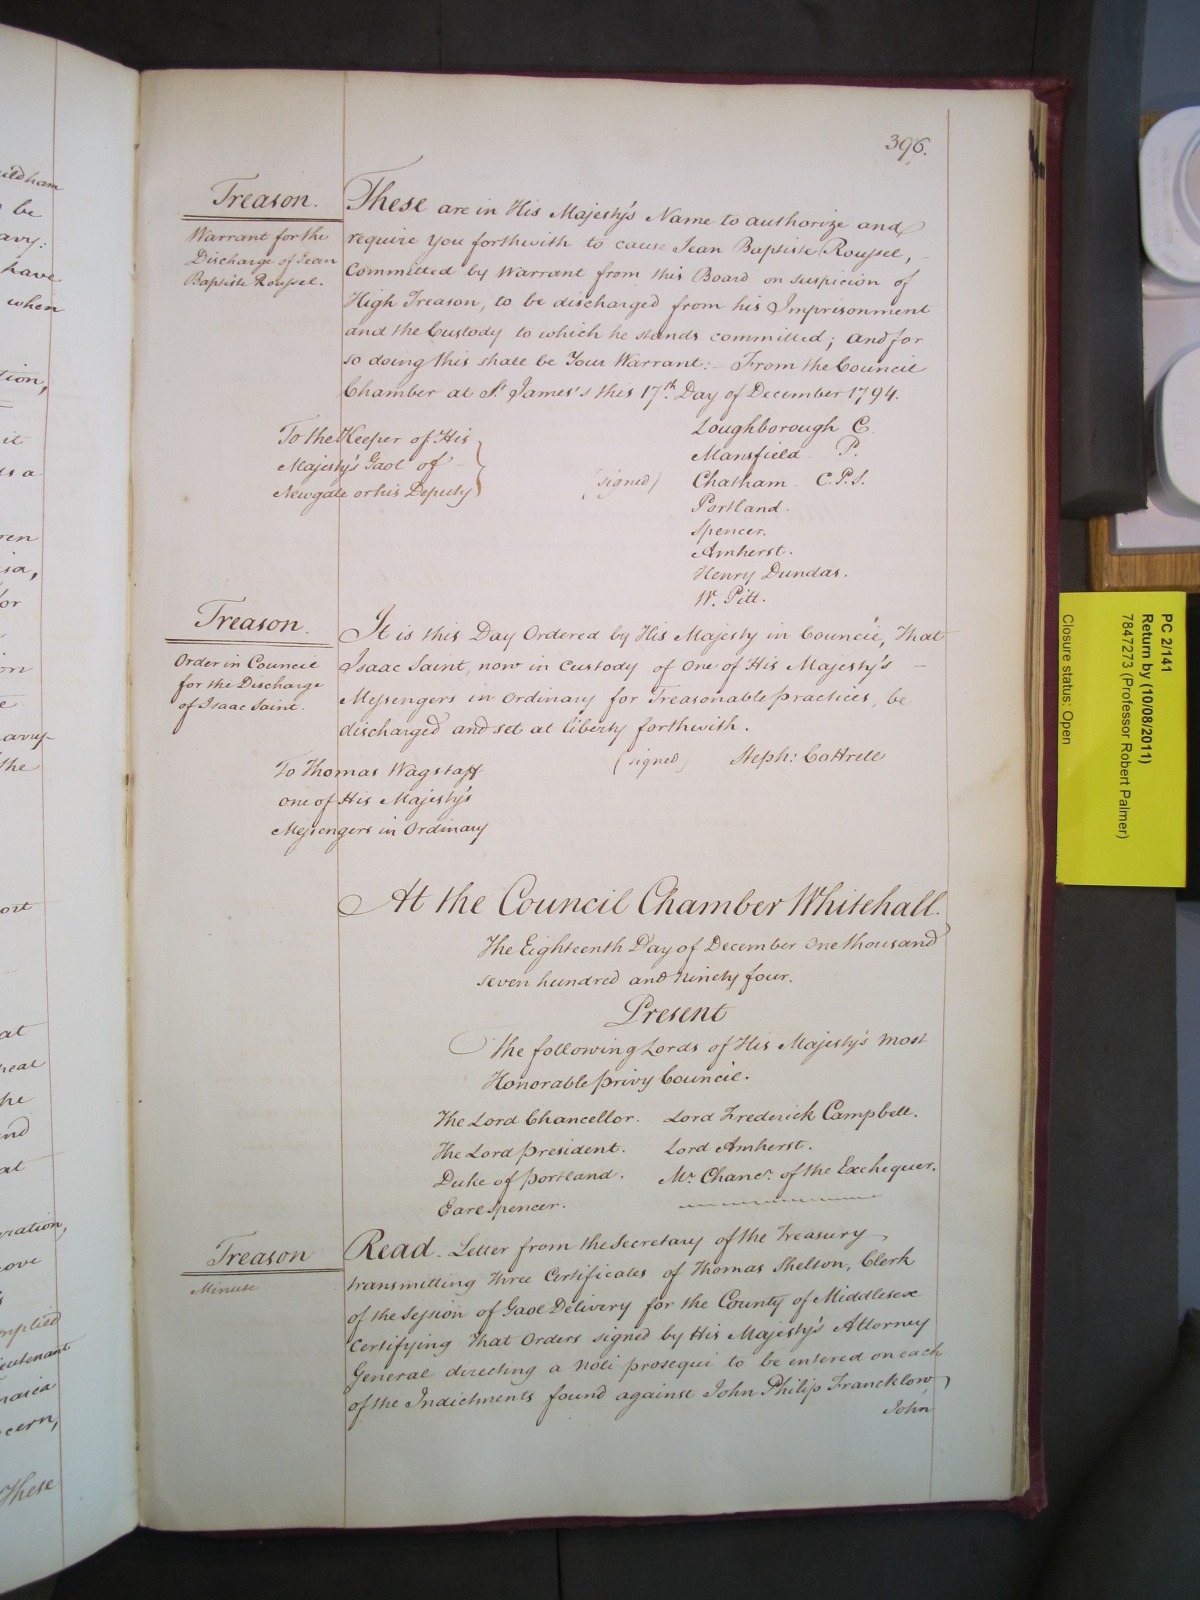 396.
Treason.
Warrant for the
Discharge of Jean
Baptiste Roussel.
These are in His Majesty's Name to authorize and
require you forthwith to cause Jean Baptiste Roussel,
Committed by Warrant from this Board on suspicion of
High Treason, to be discharged from his Imprisonment
and the Custody to which he stands committed; and for
so doing this shall be Your Warrant:- From the Council
Chamber at St. James's this 17th. Day of December 1794.
To the Keeper of His
Majesty's Gaol of
Newgate or his Deputy
(signed)
Loughborough C.
Mansfield P.
Chatham C.P.S.
Portland.
Spencer.
Amherst.
Henry Dundas.
W. Pitt.
Treason.
Order in Council
for the Discharge
of Isaac Saint.
It is this Day Ordered by His Majesty in Council, That
Isaac Saint, now in Custody of one of His Majesty's
Messengers in Ordinary for Treasonable practices, be
discharged and set at liberty forthwith.
(signed) Steph: Cottrell
To Thomas Wagstaff
one of His Majesty's
Messengers in Ordinary
At the Council Chamber Whitehall.
The Eighteenth Day of December One thousand
seven hundred and Ninety four.
Present
The following Lords of His Majesty's most
Honorable privy Council.
The Lord Chancellor. Lord Frederick Campbell.
The Lord president. Lord Amherst.
Duke of portland. Mr. Chancr. of the Exchequer.
Earl Spencer.
Treason
Minute
Read. Letter from the Secretary of the Treasury
transmitting three Certificates of Thomas Shelton, Clerk
of the Session of Gaol Delivery for the County of Middlesex
Certifying That Orders signed by His Majesty's Attorney
General directing a noli prosequi to be entered on each
of the Indictments found against John Philip Francklow,
John
PC 2/141
Return by (10/08/2011)
7847273 (Professor Robert Palmer)
Closure status: Open